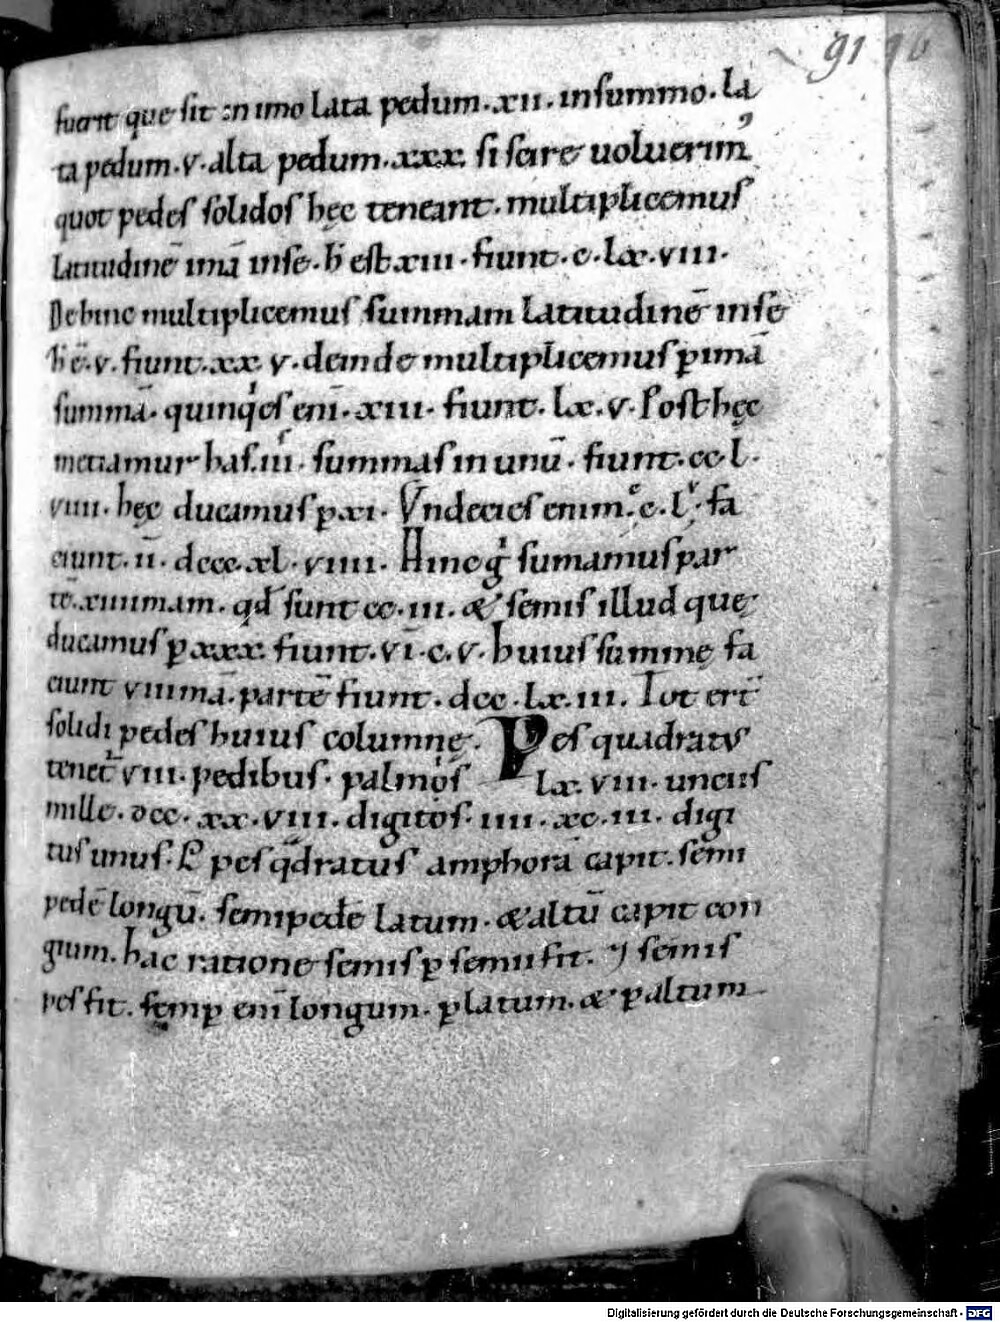 91 90
fuerit que sit in imo lata pedum.xii.insummo.la
ta pedum.v.alta pedum.xxx. si scire uoluerimꝰ
quot pedes solidos hęc teneant.multiplicemus
latitudinē imā inse.h̄ est xiii.fiunt.c.lx.viii.
Dehinc multiplicemus summam latitudinē inse
h̄ ē.v.fiunt.xx.v.deinde multiplicemus ꝑ imā
summā.quinq́es enī.xiii.fiunt.lx.v.Post hęc
metiamur has.iii.summas in unū.fiunt.cc.l.
viiii.hęc ducamus ꝑ xi.Vndecies enim.c.l.fa
ciunt.ii.dccc.xl.viiii.Hinc g̊ sumamus par
tē.xiiiimam.qđ sunt cc.iii.& semis illud que
ducamus ꝑ xxx.fiunt.vī.c.v.huius summę fa
ciunt viiimā.partē fiunt.dcc.lx.iii.Tot er̄t
solidi pedes huius columnę. Pes quadratꝰ
tenet viii.pedibus.palmos lx.viii.uncus
mille.dcc.xx.viii.digitos.iiii.xc.iii.digi
tus unus. pes q̄dratus amphorā capit.semi
pedē longū.semipedē latum.&altū capit con
gium.hac ratione semis ꝑ semu fit. semis
pes fit.semꝑ enī longum.ꝑ latum.&ꝑ altum
Digitalisierung gefördert durch die Deutsche Forschungsgemeinschaft - DFG